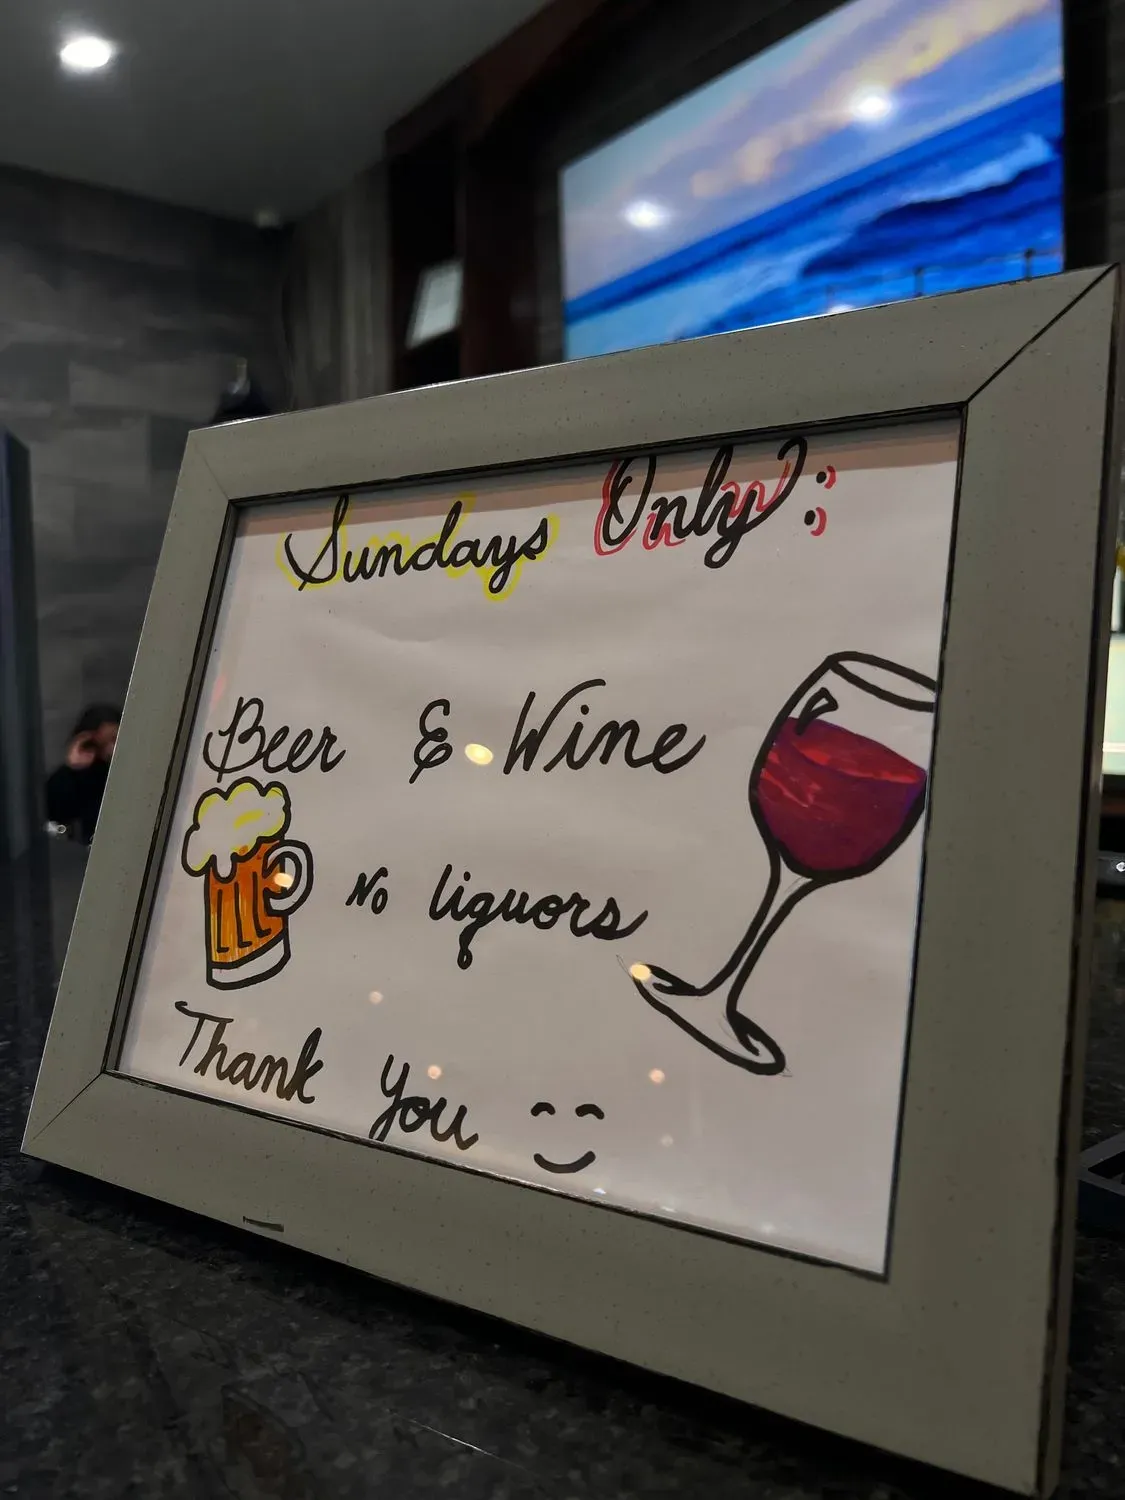 Sundays Only:
Beer & Wine
No liquors
Thank You